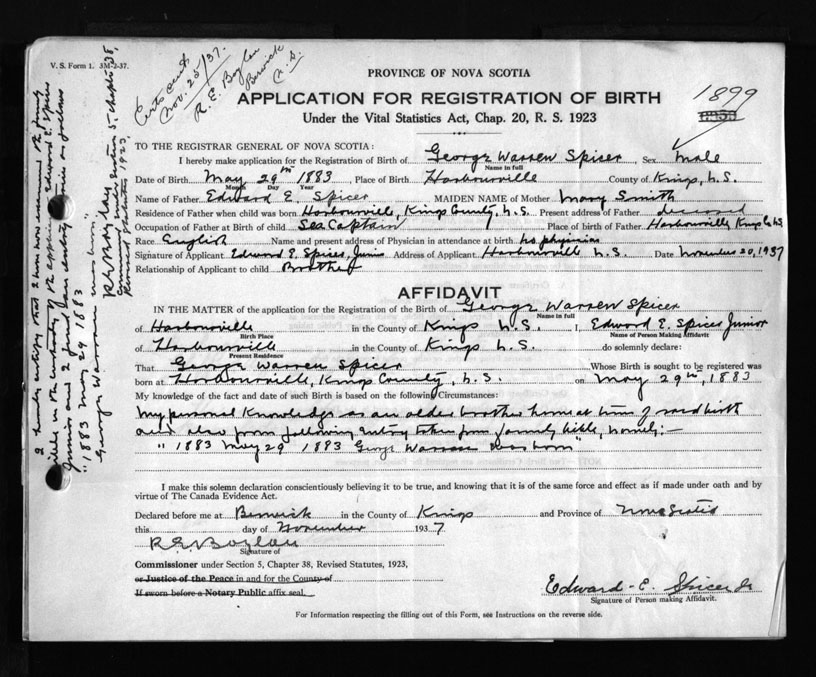 V. S. Form 1. 3M-2-37.
Certs sent
Nov. 25/37.
R. E. Boylan
Berwick
N. S.
PROVINCE OF NOVA SCOTIA
APPLICATION FOR REGISTRATION OF BIRTH
Under the Vital Statistics Act, Chap. 20, R. S. 1923
1899
TO THE REGISTRAR GENERAL OF NOVA SCOTIA:
I hereby make application for the Registration of Birth of George Warren Spicer Sex male
Name in full
Date of Birth May 29th 1883 Place of Birth Harbourville County of Kings, N.S.
Month Day Year
Name of Father Edward E. Spicer MAIDEN NAME of Mother Mary Smith
Residence of Father when child was born Harbourville, Kings County, N.S. Present address of Father deceased
Occupation of Father at Birth of child Sea Captain Place of birth of Father Harbourville Kings Co N.S.
Race English Name and present address of Physician in attendance at birth no physician
Signature of Applicant Edward E. Spicer, Junior Address of Applicant Harbourville N.S. Date November 20, 1937
Relationship of Applicant to child Brother
AFFIDAVIT
IN THE MATTER of the application for the Registration of the Birth of George Warren Spicer
Name in full
of Harbourville in the County of Kings N.S. I, Edward E. Spicer Junior
Birth Place Name of Person Making Affidavit
of Harbourville in the County of Kings N.S. do solemnly declare:
Present Residence
That George Warren Spicer Whose Birth is sought to be registered was
born at Harbourville, Kings County, N.S. on May 29th, 1883
My knowledge of the fact and date of such Birth is based on the following Circumstances:
My personal knowledge as an older brother home at time of said birth
and also from following entry taken from family bible, namely:—
"1883 May 29 1883 George Warren was born"
I make this solemn declaration conscientiously believing it to be true, and knowing that it is of the same force and effect as if made under oath and by
virtue of The Canada Evidence Act.
Declared before me at Berwick in the County of Kings and Province of Nova Scotia
this day of November 1937
R E Boylan
Signature of
Commissioner under Section 5, Chapter 38, Revised Statutes, 1923,
or Justice of the Peace in and for the County of
If sworn before a Notary Public affix seal.
Edward E. Spicer Jr
Signature of Person making Affidavit.
For Information respecting the filling out of this Form, see Instructions on the reverse side.
I hereby certify that I have now examined the family
bible in the custody of the applicant Edward E. Spicer
Junior and I found an entry therein as follows
"1883 May 29 1883
George Warren was born."
R E Boylan
Commissioner under Section 5, Chapter 38,
Revised Statutes 1923.